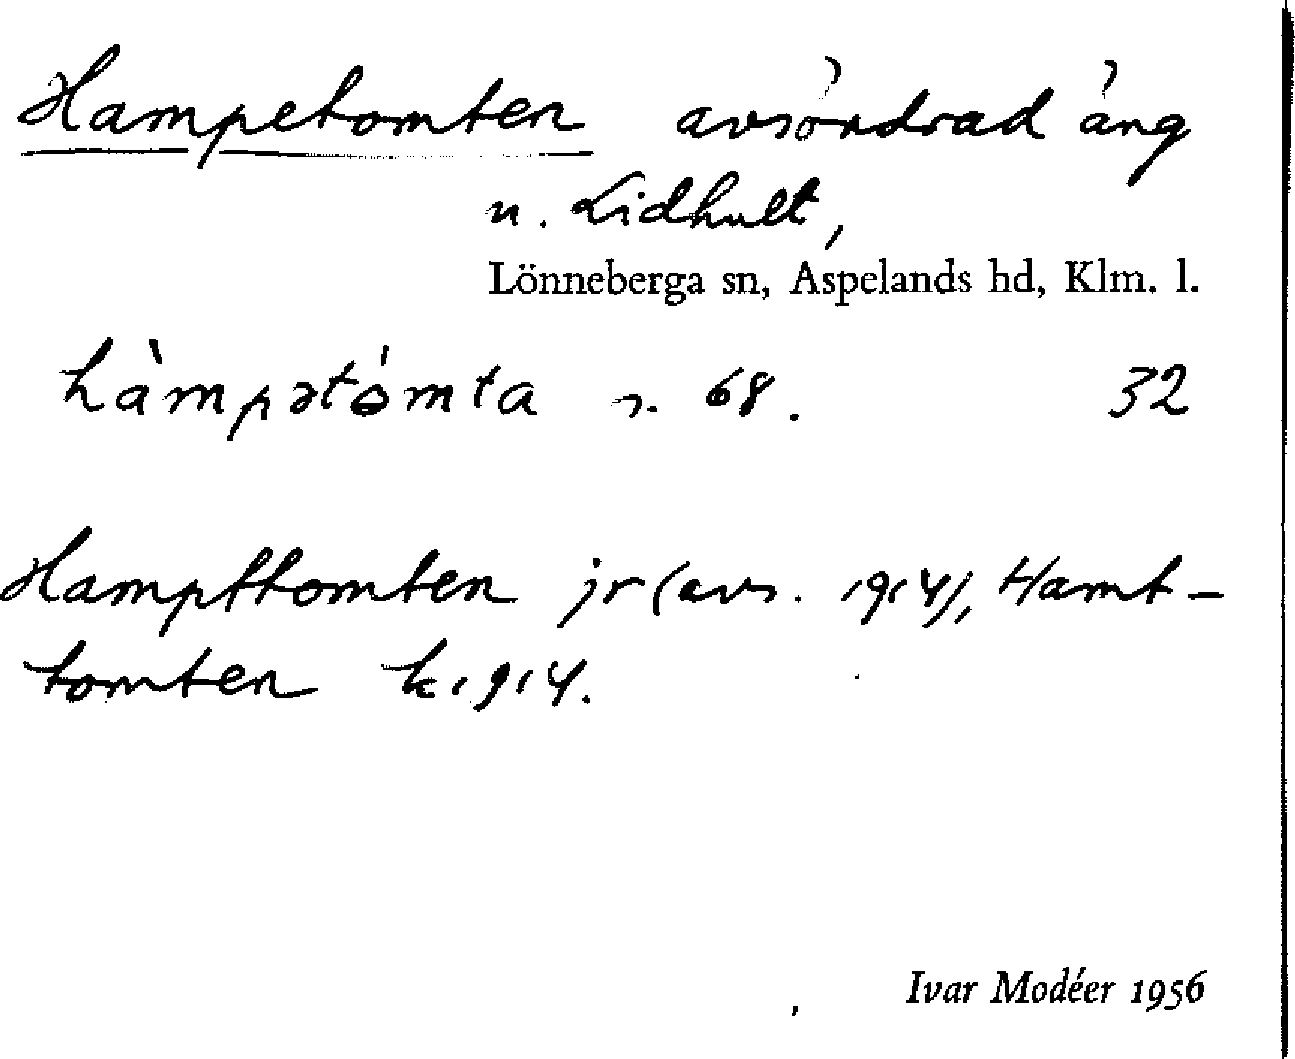 Hampetomten avsöndrad äng
u. Lidhult,
Lönneberga sn, Aspelands hd, Klm. l.
hàmpətómta s. 68. 32
Hampttomten jr (avs. 1914), Hamt-
tomten k 1914.
Ivar Modéer 1956